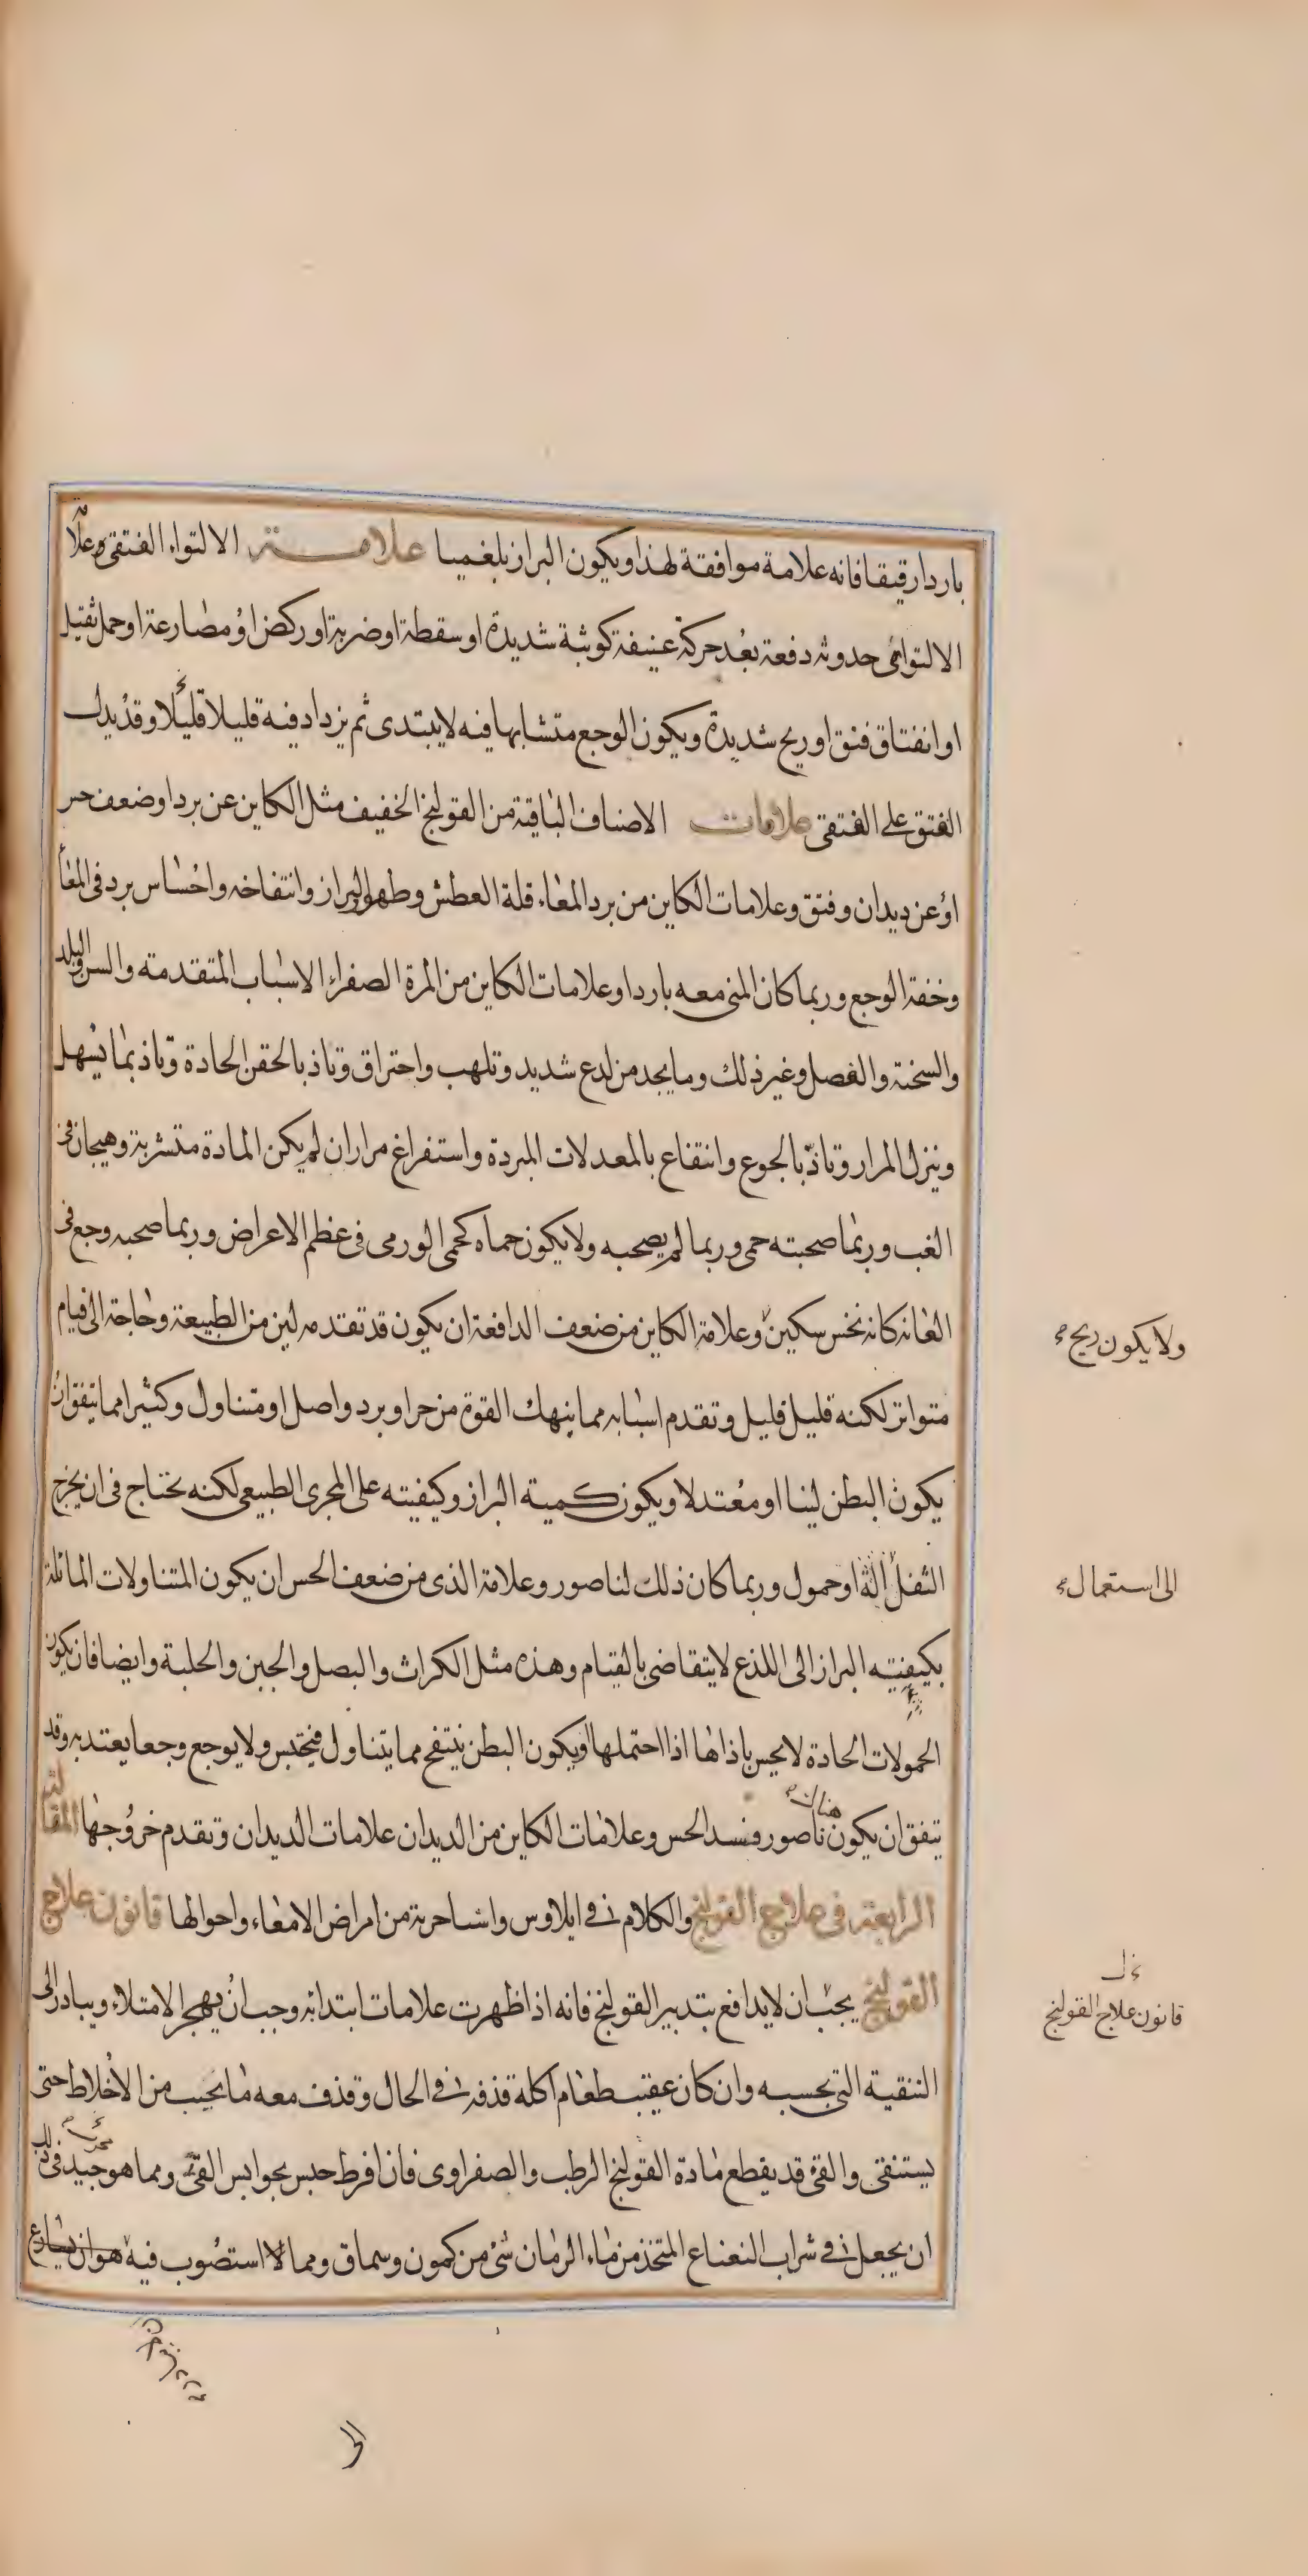 باردا رقيقا فانه علامة موافقة لهذا ويكون البراز بلغميا علامة الالتواء الفتقى علا
الالتوائى حدوثه دفعة بعد حركة عنيفة كوثبة شديدة او سقطة او ضربة او ركض او مصارعة او حمل ثقيل
او انفتاق فتق او ريح شديدة ويكون الوجع متشابها فيه لا يبتدى ثم يزداد فيه قليلا قليلا وقد يدل
الفتق على الفتقى علامات الاصناف الباقية من القولنج الخفيف مثل الكاين عن برد او ضعف حس
او عن ديدان وفتق وعلامات الكاين من برد المعاء قلة العطش وطهو البراز وانتفاخه واحساس برد فى المعا
وخفة الوجع وربما كان المنى معه باردا وعلامات الكاين من المرة الصفراء الاسباب المتقدمة والسن والبلد
والسخنة والفصل وغير ذلك وما يجد من لدع شديد وتلهب واحتراق وتاذ بالحقن الحادة وتاذ بما يسهل
وينزل المرار وتاذ بالجوع وانتفاع بالمعدلات المبردة واستفراغ مرار ان لم يكن المادة متشربة وهيجان فى
الغب وربما صحبته حمى وربما لم يصحبه ولا يكون حماه كحمى الورمى فى عظم الاعراض وربما صحبه وجع فى
العانه كانه نخس سكين وعلامة الكاين من ضعف الدافعة ان يكون قد تقدمه لين من الطبيعة وحاجة الى قيام
ولا يكون ريح
متواتر لكنه قليل قليل وتقدم اسبابه مما ينهك القوة من حر او برد واصل او متناول وكثيرا مما يتفق ان
يكون البطن لينا او معتدلا ويكون كمية البراز وكيفيته على المجرى الطبيعى لكنه يحتاج فى ان يخرج
الثفل آلة او حمول وربما كان ذلك لناصور وعلامة الذى من ضعف الحس ان يكون المتناولات المائلة
الى استعمال
بكيفيته البراز الى اللذع لا يتقاضى بالقيام وهذه مثل الكراث والبصل والجبن والحلبة وايضا فان يكون
الحمولات الحادة لا يحس باذاها اذا احتملها ويكون البطن ينتفخ مما يتناول فيحتبس ولا يوجع وجعا يعتد به وقد
يتفق ان يكون هناك ناصور فسد الحس وعلامات الكاين من الديدان علامات الديدان وتقدم خروجها المقالة
الرابعة فى علاج القولنج والكلام فى ايلاوس واشيا جزية من امراض الامعاء واحوالها قانون علاج
القولنج يجب ان لا يدافع بتدبير القولنج فانه اذا ظهرت علامات ابتدائه وجب ان يهجر الامتلاء ويبادر الى
قانون علاج القولنج
التنقية التى بحسبه وان كان عقيب طعام اكله قذفه فى الحال وقذف معه ما يجيب من الاخلاط حتى
يستنقى والقئ قد يقطع مادة القولنج الرطب والصفراوى فان افرط حبس بحوابس القئ ومما هو جيد فى ذلك
ان يجعل فى شراب النعناع المتخذ من ماء الرمان شئ من كمون وسماق ومما لا استصوب فيه هو ان يسارع
الى